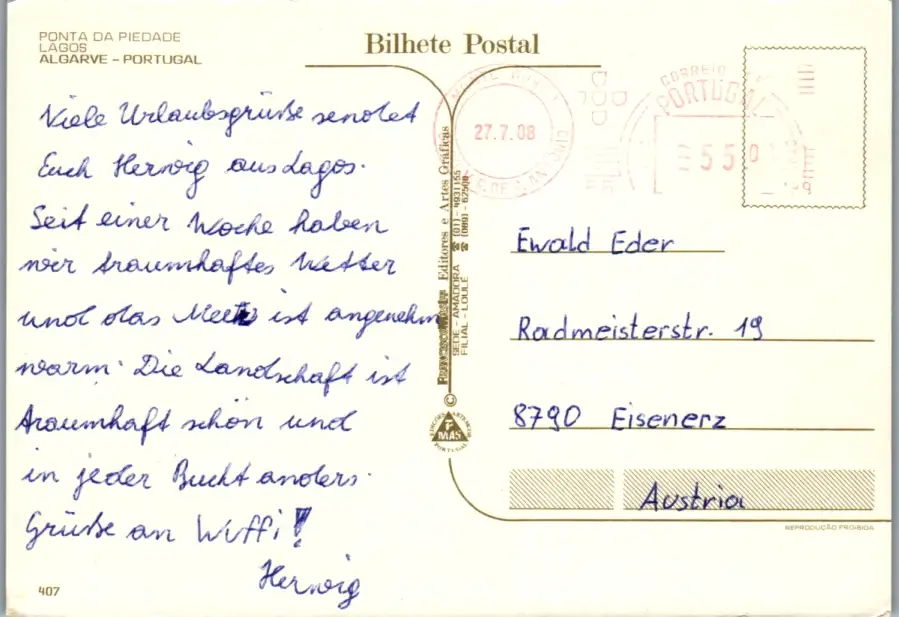 PONTA DA PIEDADE
LAGOS
ALGARVE – PORTUGAL
Bilhete Postal
Viele Urlaubsgrüße sendet
Euch Herwig aus Lagos.
Seit einer Woche haben
wir traumhaftes Wetter
und das Meer ist angenehm
warm. Die Landschaft ist
traumhaft schön und
in jeder Bucht anders.
Grüße an Wuffi!
Herwig
407
27.7.08
CORREIO
PORTUGAL
Editores e Artes Gráficas
SEDE – AMADORA ☎ (01) - 4931155
FILIAL – LOULÉ ☎ (089) - 62500
©
MAS
PORTUGAL
Ewald Eder
Radmeisterstr. 19
8790 Eisenerz
Austria
REPRODUÇÃO PROIBIDA